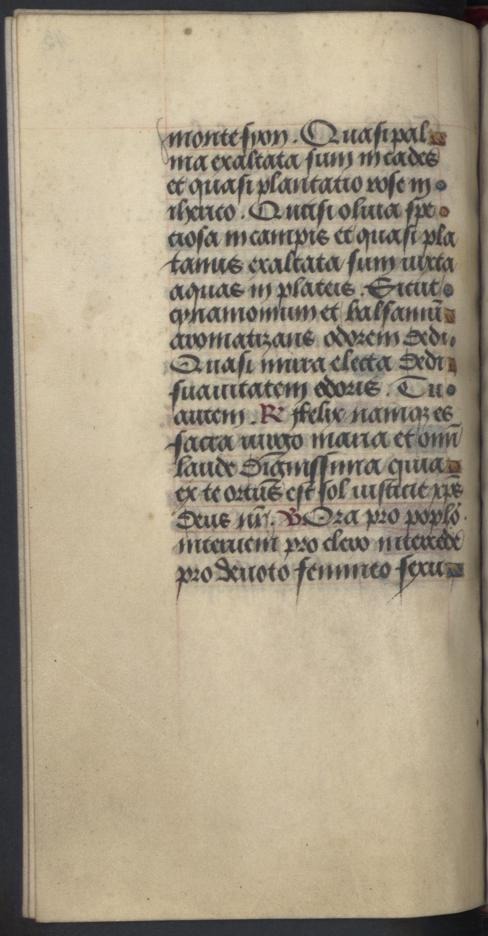 monte syon. Quasi pal
ma exaltata sum in cades
et quasi plantatio rose in
iherico. Quasi oliua spe
ciosa in campis et quasi pla
tanus exaltata sum iuxta
aquas in plateis. Sicut
cynamomum et balsamū
aromatizans odorem dedi.
Quasi mirra electa dedi
suauitatem odoris. Tu
autem. R ffelix namqꝫ es
sacra uirgo maria et omī
laude dignissima quia
ex te ortus est sol iusticie xp̄s
deus nr̄. V Ora pro poplo
interueni pro clero intercede
pro deuoto femineo sexu